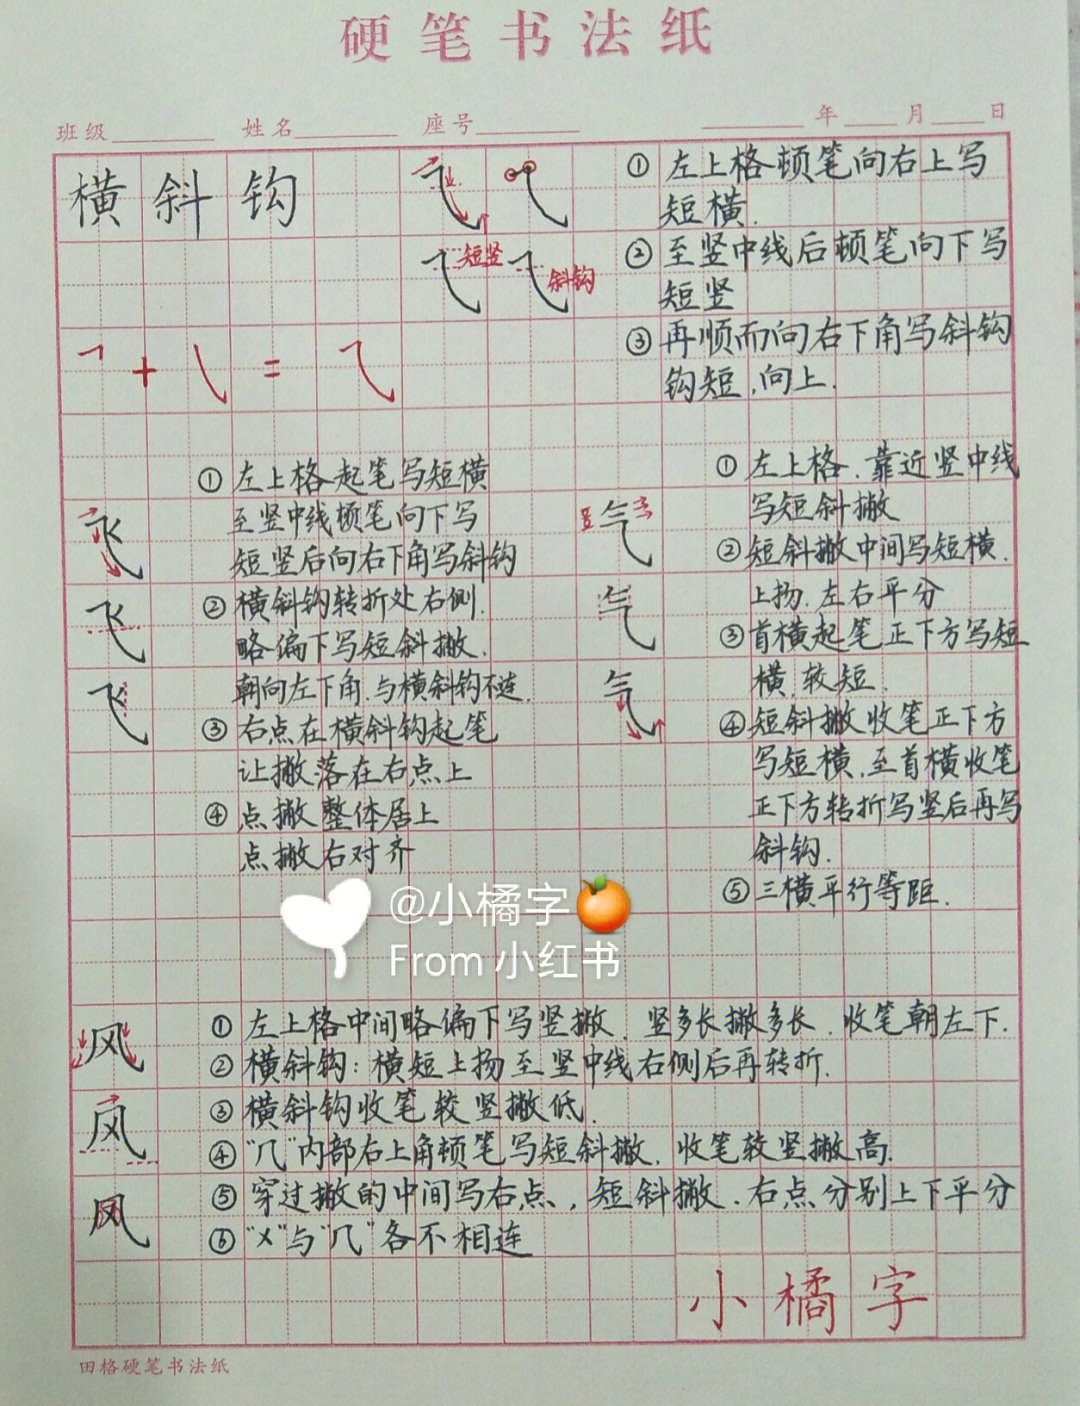 硬笔书法纸
班级 姓名 座号 年 月 日
横斜钩
短竖
斜钩
+ =
① 左上格顿笔向右上写
短横.
② 至竖中线后顿笔向下写
短竖
③ 再顺而向右下角写斜钩
钩短.向上.
飞
飞
飞
① 左上格起笔写短横
至竖中线顿笔向下写
短竖后向右下角写斜钩
② 横斜钩转折处右侧.
略偏下写短斜撇.
朝向左下角.与横斜钩不连.
③ 右点在横斜钩起笔
让撇落在右点上
④ 点撇整体居上
点撇右对齐
气
气
气
① 左上格.靠近竖中线
写短斜撇
② 短斜撇中间写短横.
上扬.左右平分
③ 首横起笔正下方写短
横.较短.
④ 短斜撇收笔正下方
写短横.至首横收笔
正下方转折写竖后再写
斜钩.
⑤ 三横平行等距.
@小橘字🍊
From 小红书
风
风
风
① 左上格中间略偏下写竖撇.竖多长撇多长.收笔朝左下.
② 横斜钩:横短上扬至竖中线右侧后再转折.
③ 横斜钩收笔较竖撇低.
④ "几"内部右上角顿笔写短斜撇.收笔较竖撇高.
⑤ 穿过撇的中间写右点,短斜撇.右点分别上下平分
⑥ "㐅"与"几"各不相连
小橘字
田格硬笔书法纸